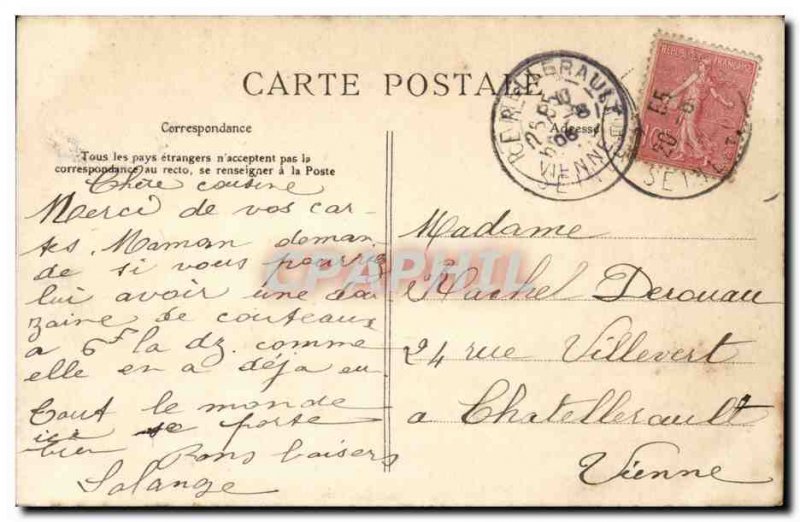 CARTE POSTALE
Correspondance
Adresse
Tous les pays étrangers n'acceptent pas la
correspondance au recto, se renseigner à la Poste
REPUBLIQUE FRANÇAISE
VIENNE
CPAPHIL
Chère cousine
Merci de vos car-
tes. Maman deman
de si vous pourriez
lui avoir une dou
zaine de couteaux
a 6f la dz. comme
elle en a déja eu
Tout le monde
ici se porte
bien
Bons baisers
Solange
Madame
Rachel Derouau
24 rue Villevert
a Chatellerault
Vienne